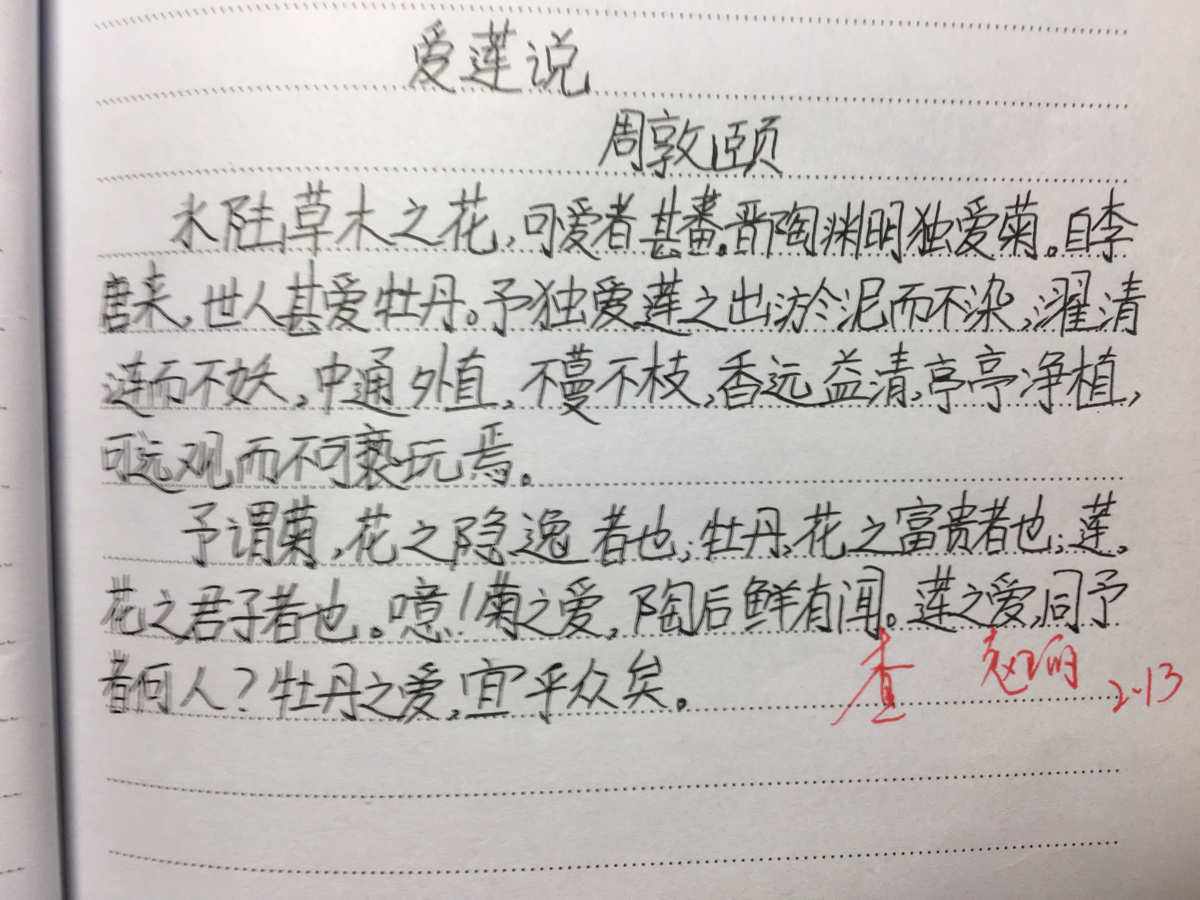 爱莲说
周敦颐
水陆草木之花,可爱者甚蕃。晋陶渊明独爱菊。自李
唐来,世人甚爱牡丹。予独爱莲之出淤泥而不染,濯清
涟而不妖,中通外直,不蔓不枝,香远益清,亭亭净植,
可远观而不可亵玩焉。
予谓菊,花之隐逸者也;牡丹,花之富贵者也;莲,
花之君子者也。噫!菊之爱,陶后鲜有闻。莲之爱,同予
者何人?牡丹之爱,宜乎众矣。
查 2.13